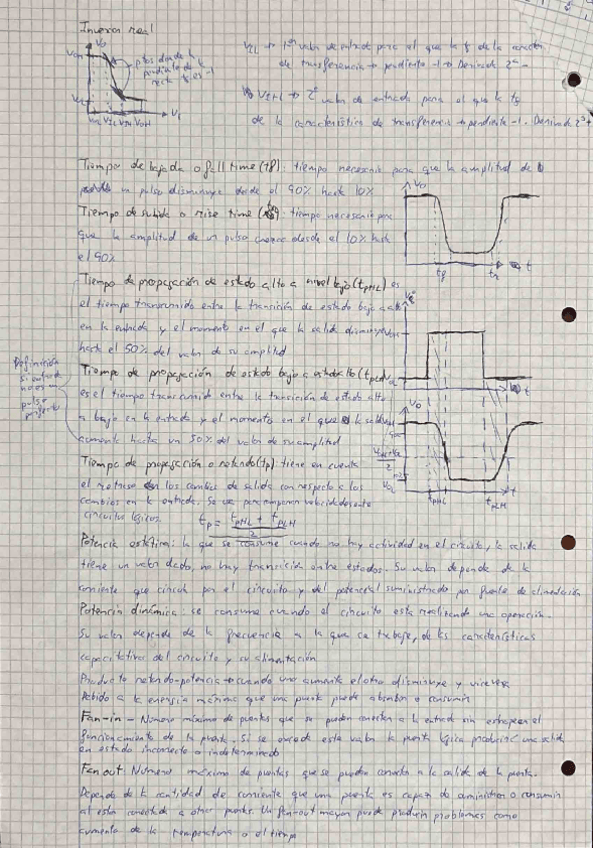 Inversor real
Vo
VOH
ptos donde la
pendiente de la
recta tg es -1
VOL
VIL VIH VOH
VI
VIL → 1er valor de entrada para el que la tg de la
de transferencia → pendiente -1 → Derivada 2ª -
VIH → 2º valor de entrada para el que la tg
de la característica de transferencia → pendiente -1. Derivada 2ª +
Tiempo de bajada o fall time (tf): tiempo necesario para que la amplitud de
un pulso disminuya desde el 90% hasta 10%
Tiempo de subida o rise time: tiempo necesario para
que la amplitud de un pulso crezca desde el 10% hasta
el 90%
Vo
tf
tr
t
Tiempo de propagación de estado alto a nivel bajo (tpHL) es
el tiempo transcurrido entre la transición de estado bajo a alto
en la entrada y el momento en el que la salida disminuye
hasta el 50% del valor de su amplitud
Definición
si
pulso
Tiempo de propagación de estado bajo a estado alto
es el tiempo transcurrido entre la transición de estado alto
a bajo en la entrada y el momento en el que la salida
aumenta hasta un 50% del valor de su amplitud
Tiempo de propagación o retardo (tp) tiene en cuenta
el retraso en los cambios de salida con respecto a los
cambios en la entrada. Se usa para comparar velocidades entre
circuitos lógicos.
tp = tpHL + tpLH
2
t
Vo
VOL
tpHL
tpLH
t
Potencia estática: la que se consume cuando no hay actividad en el circuito, la salida
tiene un valor dado, no hay transición entre estados. Su valor depende de la
corriente que circula por el circuito y del potencial suministrado por fuente de alimentación
Potencia dinámica: se consume cuando el circuito está realizando una operación.
Su valor depende de la frecuencia a la que se trabaje, de las características
capacitativas del circuito y su alimentación
Producto retardo-potencia → cuando uno aumenta el otro disminuye y viceversa
Debido a la energía máxima que una puerta puede absorber o consumir
Fan-in - Número máximo de puertas que se pueden conectar a la entrada sin estropear el
funcionamiento de la puerta. Si se excede este valor la puerta lógica producirá una salida
en estado incorrecto o indeterminado
Fan out: Número máximo de puertas que se pueden conectar a la salida de la puerta.
Depende de la cantidad de corriente que una puerta es capaz de suministrar o consumir
al estar conectada a otras puertas. Un fan-out mayor puede producir problemas como
aumento de la temperatura o el tiempo